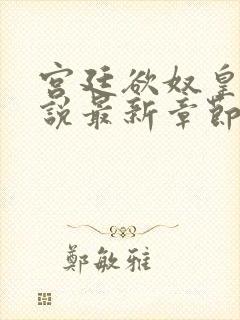 宫廷欲奴皇
說最新章節
鄭敏雅